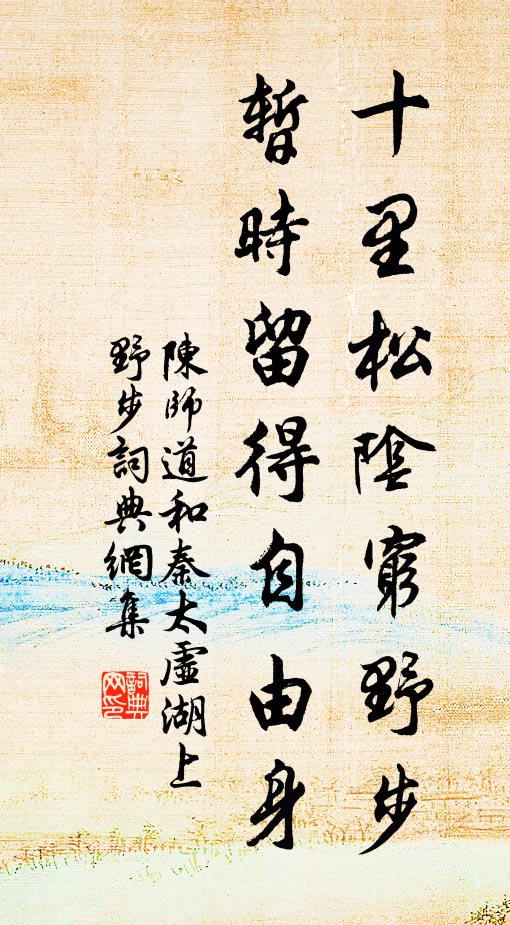 十里松陰窮野步
暫時留得自由身
陳師道和秦太虛湖上
野步詞典網集
詞典
网印